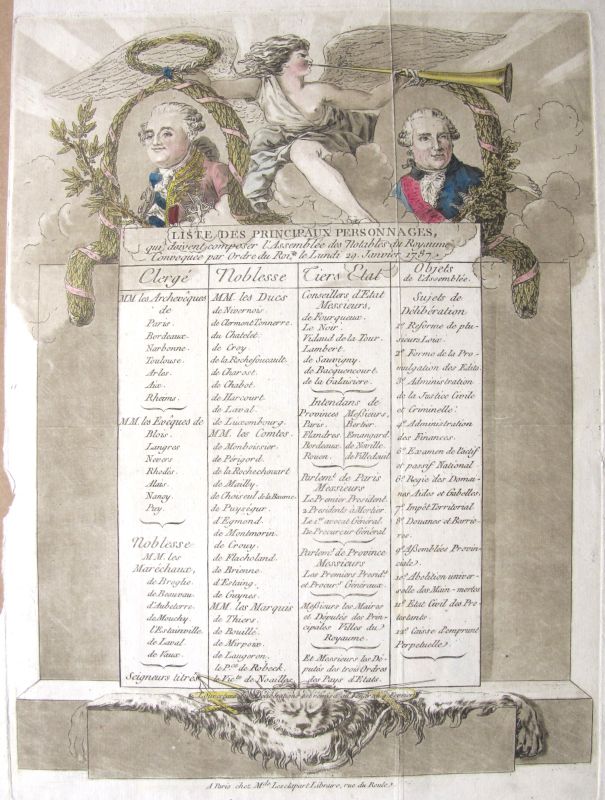 LISTE DES PRINCIPAUX PERSONNAGES,
qui doivent composer l'Assemblée des Notables du Royaume
Convoquée par Ordre du Roi, le Lundi 29. Janvier 1787.
Clergé
MM. les Archevêques
de
Paris.
Bordeaux.
Narbonne.
Toulouse.
Arles.
Aix.
Rheims.
MM. les Evêques de
Blois.
Langres
Nevers
Rhodés.
Alais.
Nancy.
Puy.
Noblesse
MM. les
Maréchaux,
de Broglie.
de Beauvau.
d'Aubeterre.
de Mouchy.
de Laval.
de Vaux.
Seigneurs titrés
Noblesse
MM. les Ducs
de Nivernois.
de Clermont Tonnerre.
du Chatelet.
de Croy
de la Rochefoucault.
de Charost.
de Chabot.
de Harcourt.
de Laval.
de Luxembourg.
MM. les Comtes.
de Monboissier.
de Périgord.
de la Rochechouart
de Mailly.
de Choiseul de la Baume.
de Puységur.
d'Egmond.
de Montmorin.
de Crouy.
de Flachsland.
de Brienne.
d'Estaing.
de Guynes.
MM. les Marquis
de Thiers.
de Bouillé.
de Mirpoix.
de Langeron.
le P.ce de Robeck.
le Vic.te de Noailles
Tiers Etat
Conseillers d'Etat
Messieurs,
de Fourqueux.
Le Noir.
Vidaud de la Tour.
Lambert.
de Sauvigny.
de Bacquencourt.
de la Galaisiere.
Intendans de
Provinces Messieurs,
Paris. Bertier
Flandres Esmangard
Bordeaux. de Néville.
Rouen. de Villedeuil
Parlem.t de Paris
Messieurs
Le Premier Président.
2 Présidents à Mortier.
Le 1.er avocat Général.
Le Procureur Général
Parlem.t de Province
Messieurs
Les Premiers Presid.ts
et Procur.s Généraux.
Messieurs les Maires
et Députés des Prin-
cipales Villes du
Royaume.
Et Messieurs les Dé-
putés des trois Ordres
des Pays d'Etats.
Objets
de l'Assemblée.
Sujets de
Délibération
1.º Réforme de plu-
sieurs Loix
2.º Forme de la Pro-
mulgation des Edits.
3.º Administration
de la Justice Civile
et Criminelle.
4.º Administration
des Finances.
6.º Examen de l'actif
et passif National
6.º Régie des Domai-
nes Aides et Gabelles.
7.º Impôt Territorial
8.º Douanes et Barrie-
res.
9.º Assemblées Provin-
ciale.
10.º Abolition univer-
selle des Main-mortes
11.º Etat Civil des Pro-
testants
12.º Caisse d'emprunt
Perpetuelle.
A Paris chez M.de Lesclapart Libraire, rue du Roule.